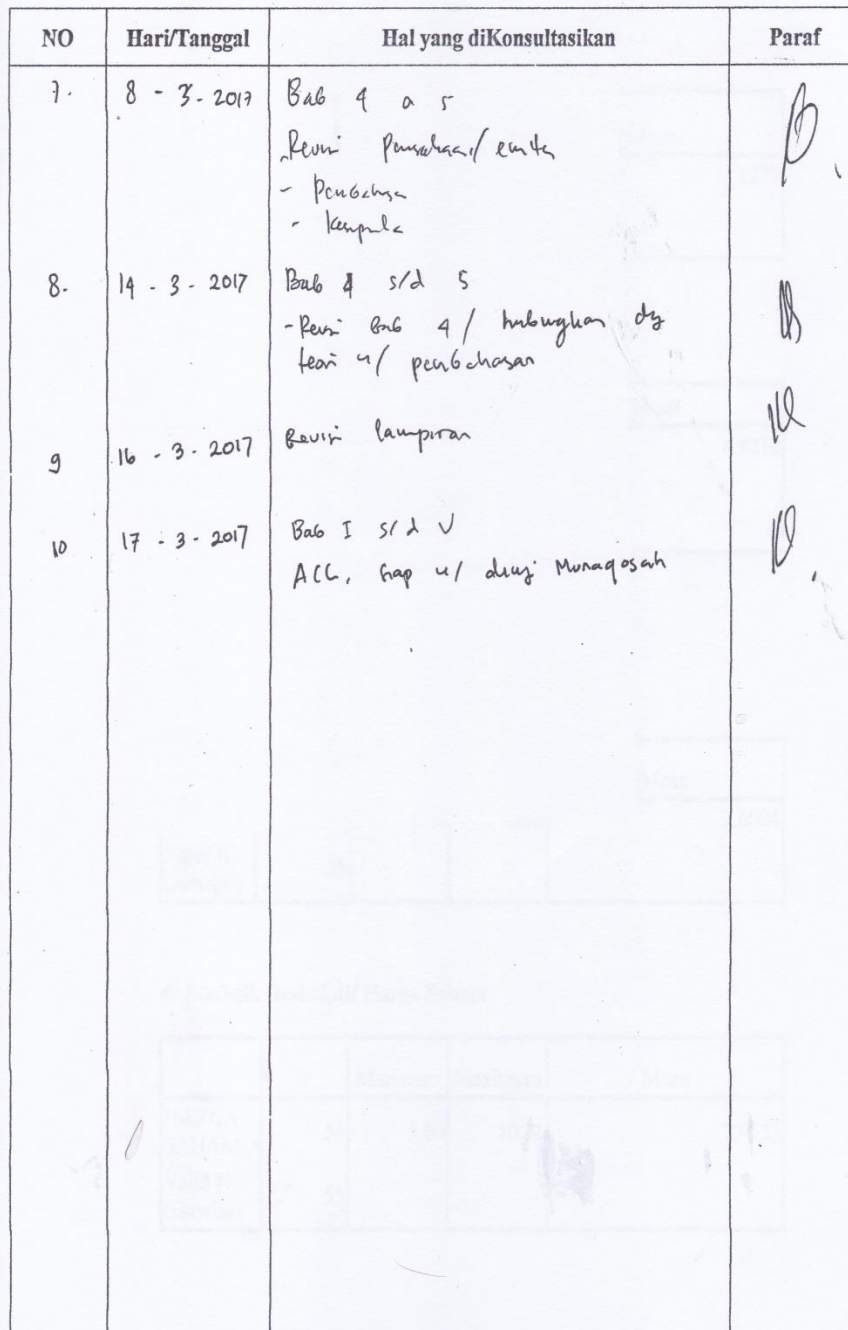 NO Hari/Tanggal Hal yang diKonsultasikan Paraf
7. 8 - 3 - 2017 Bab 4 a 5
Revisi
-
-
8. 14 - 3 - 2017 Bab 4 s/d 5
- Revisi Bab 4 / hubungkan dg
teori u/ pembahasan
9 16 - 3 - 2017 Revisi lampiran
10 17 - 3 - 2017 Bab I s/d V
ACC, Siap u/ diuji Munaqosah